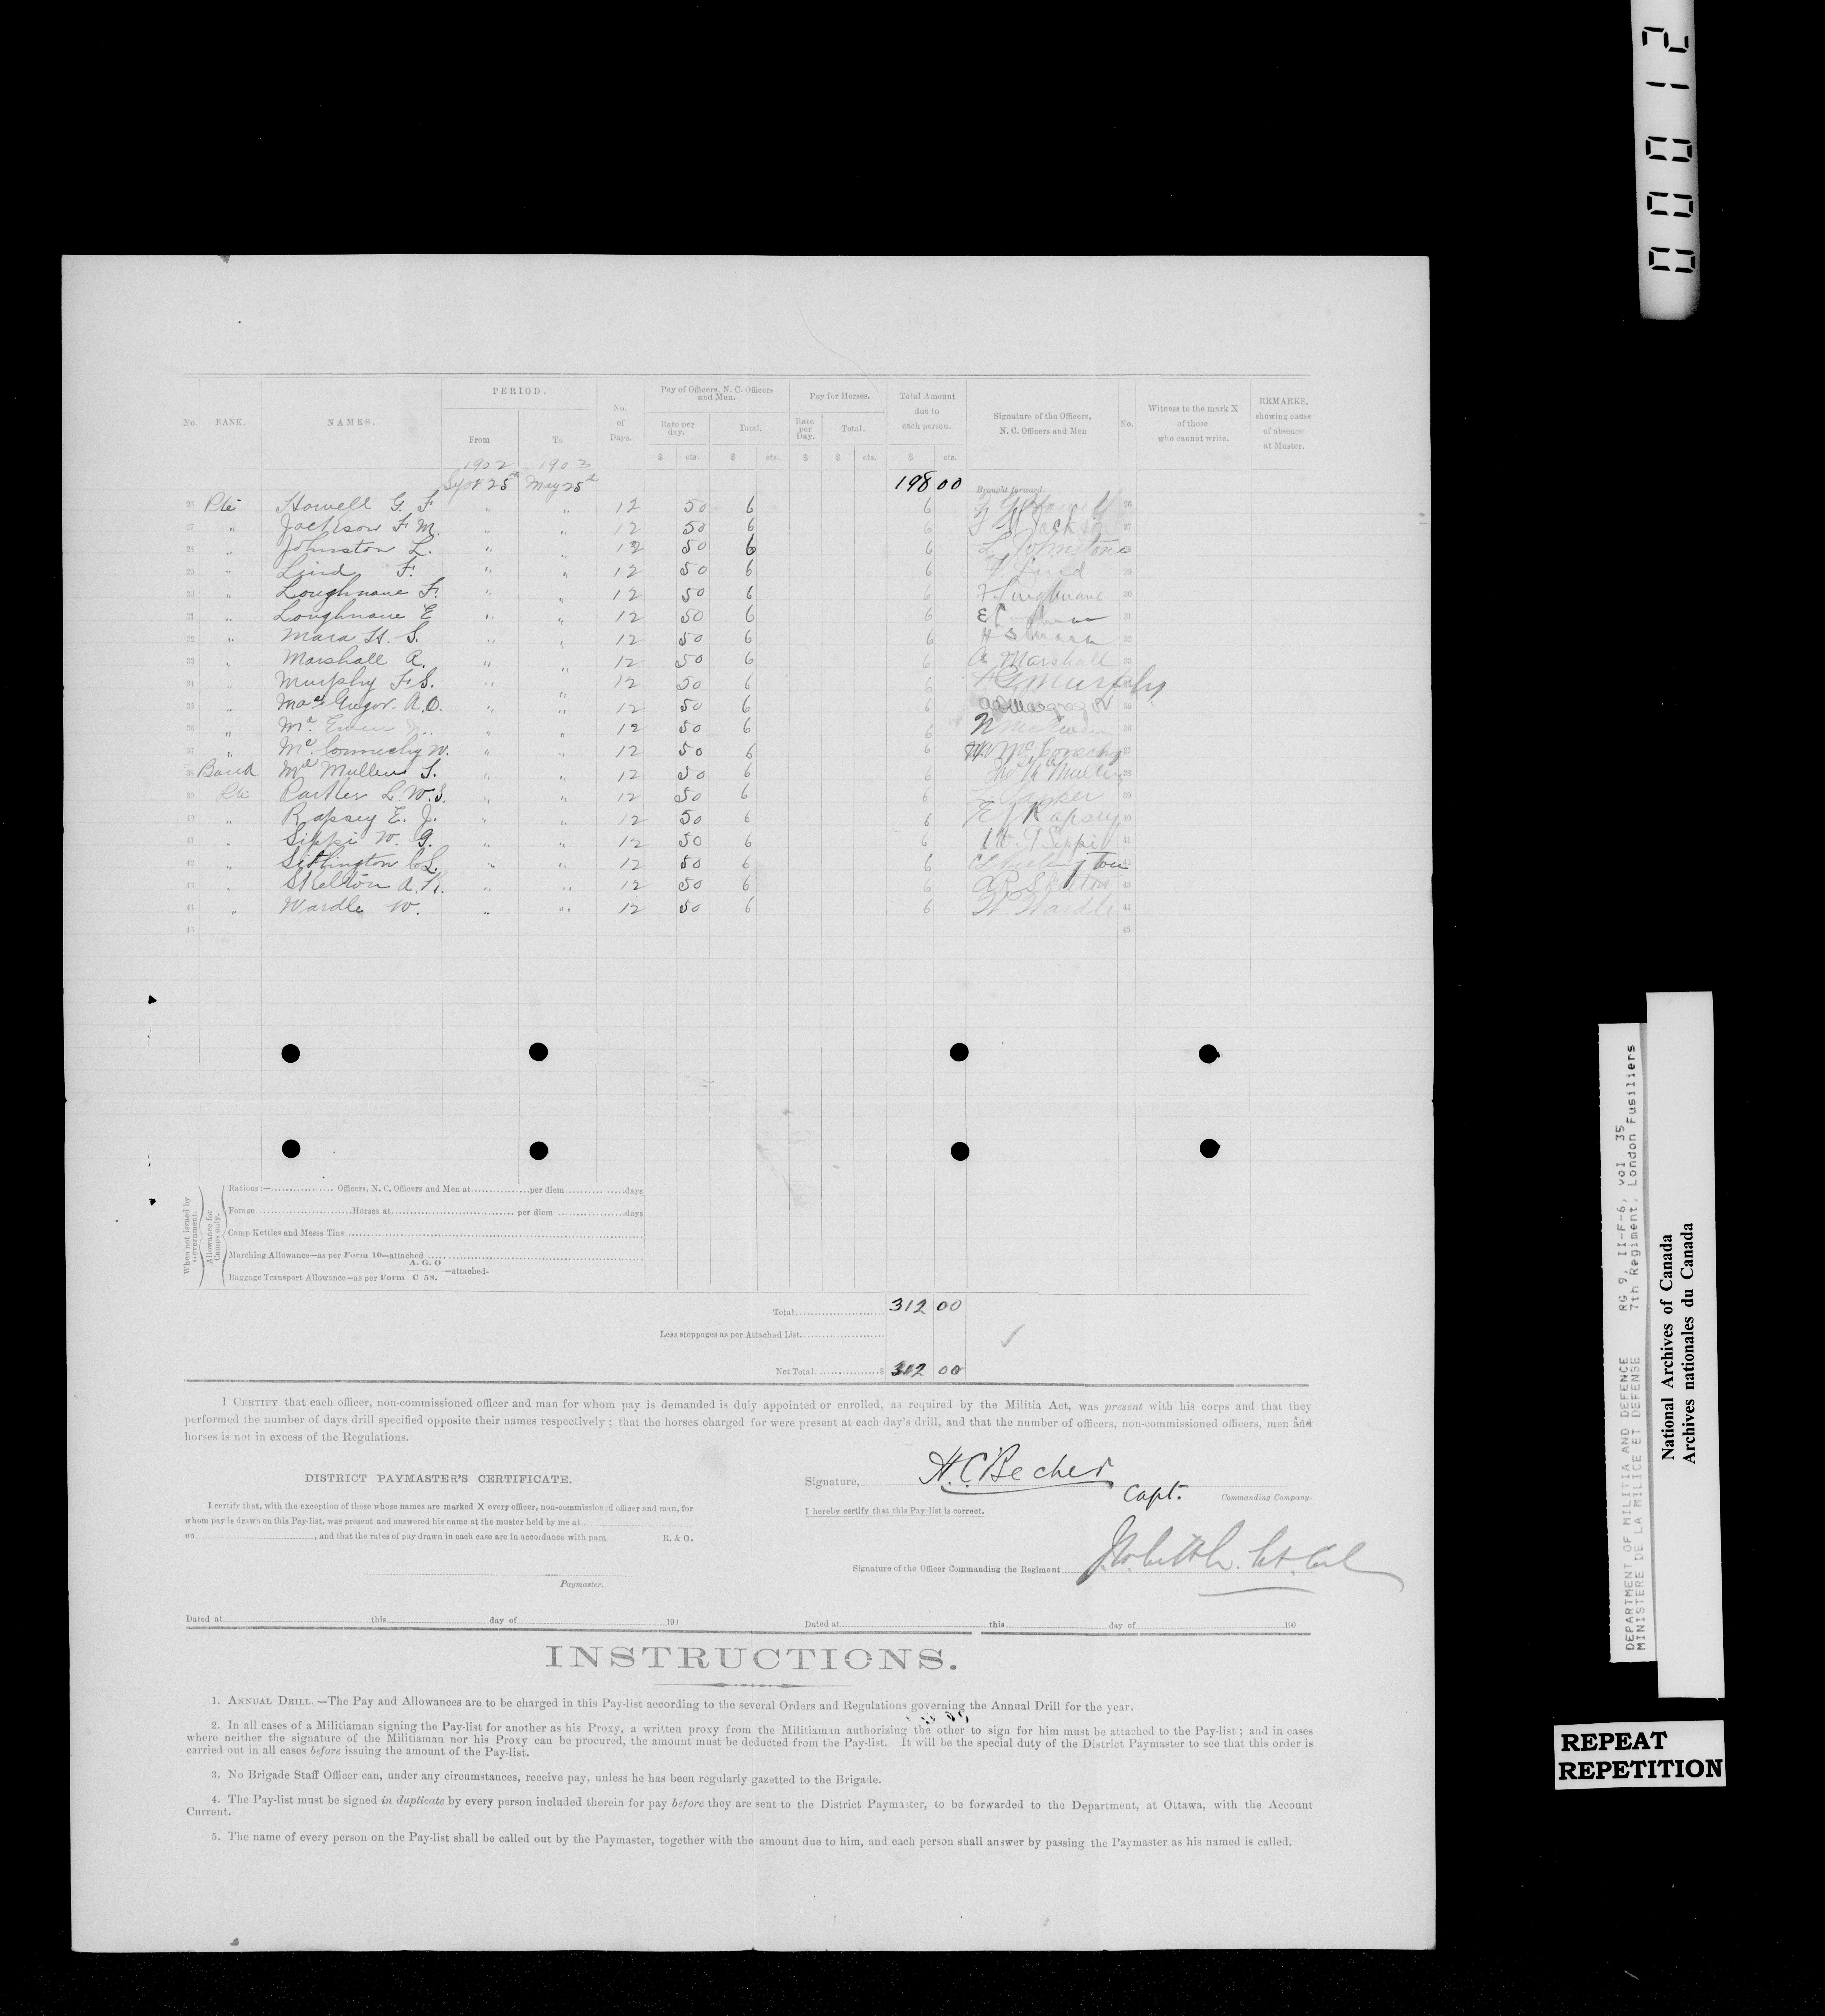 00012
No. RANK. NAMES. PERIOD. From To No. of Days. Pay of Officers, N. C. Officers and Men. Rate per day. Total. Pay for Horses. Rate per Day. Total. Total Amount due to each person. Signature of the Officers, N. C. Officers and Men No. Witness to the mark X of those who cannot write. REMARKS, showing cause of absence at Muster.
$ cts. $ cts. $ $ cts. $ cts.
1902 1903
Sept 25th May 25th 198 00 Brought forward.
26 Pte Howell G. F " " 12 50 6 6 26
27 " Jackson F. M. " " 12 50 6 6 Jackson 27
28 " Johnston L. " " 12 50 6 6 L. Johnston 28
29 " Lind F. " " 12 50 6 6 F. Lind 29
30 " Loughnane F. " " 12 50 6 6 F. Loughnane 30
31 " Loughnane E " " 12 50 6 6 31
32 " Mara H. S. " " 12 50 6 6 H S Mara 32
33 " Marshall A. " " 12 50 6 6 A Marshall 33
34 " Murphy F. S. " " 12 50 6 6 Murphy
35 " MacGregor A. O. " " 12 50 6 6 Macgregor 35
36 " Mc Ewen " " 12 50 6 6 N McEwen 36
37 " Mc Connechy W. " " 12 50 6 6 Wm McConechy 37
38 Band Mc Mullen S. " " 12 50 6 6 38
39 Pte Parker L. W. S. " " 12 50 6 6 Parker 39
40 " Rapsey E. J. " " 12 50 6 6 E J Rapsey 40
41 " Sippi W. G. " " 12 50 6 6 W. G Sippi 41
42 " Sithington C. L. " " 12 50 6 6 42
43 " Skelton A. R. " " 12 50 6 6 A R Skelton 43
44 " Wardle W. " " 12 50 6 6 W. Wardle 44
45 45
When not issued by Government. Allowance for Camps only.
Rations:— Officers, N. C. Officers and Men at per diem days
Forage Horses at per diem days
Camp Kettles and Messs Tins
Marching Allowance—as per Form 10—attached
Baggage Transport Allowance—as per Form A. G. O C 58. —attached.
Total 312 00
Less stoppages as per Attached List
Net Total $ 312 00
I CERTIFY that each officer, non-commissioned officer and man for whom pay is demanded is duly appointed or enrolled, as required by the Militia Act, was present with his corps and that they
performed the number of days drill specified opposite their names respectively ; that the horses charged for were present at each day's drill, and that the number of officers, non-commissioned officers, men and
horses is not in excess of the Regulations.
DISTRICT PAYMASTER'S CERTIFICATE.
I certify that, with the exception of those whose names are marked X every officer, non-commissioned officer and man, for
whom pay is drawn on this Pay-list, was present and answered his name at the muster held by me at
on , and that the rates of pay drawn in each case are in accordance with para R. & O.
Paymaster.
Dated at this day of 190
Signature, H. C. Becher Capt. Commanding Company.
I hereby certify that this Pay-list is correct.
Signature of the Officer Commanding the Regiment
Dated at this day of 190
INSTRUCTIONS.
1. ANNUAL DRILL.—The Pay and Allowances are to be charged in this Pay-list according to the several Orders and Regulations governing the Annual Drill for the year.
2. In all cases of a Militiaman signing the Pay-list for another as his Proxy, a written proxy from the Militiaman authorizing the other to sign for him must be attached to the Pay-list ; and in cases
where neither the signature of the Militiaman nor his Proxy can be procured, the amount must be deducted from the Pay-list. It will be the special duty of the District Paymaster to see that this order is
carried out in all cases before issuing the amount of the Pay-list.
3. No Brigade Staff Officer can, under any circumstances, receive pay, unless he has been regularly gazetted to the Brigade.
4. The Pay-list must be signed in duplicate by every person included therein for pay before they are sent to the District Paymaster, to be forwarded to the Department, at Ottawa, with the Account
Current.
5. The name of every person on the Pay-list shall be called out by the Paymaster, together with the amount due to him, and each person shall answer by passing the Paymaster as his named is called.
DEPARTMENT OF MILITIA AND DEFENCE RG 9, II-F-6, vol. 35
MINISTERE DE LA MILICE ET DEFENSE 7th Regiment, London Fusiliers
National Archives of Canada
Archives nationales du Canada
REPEAT
REPETITION